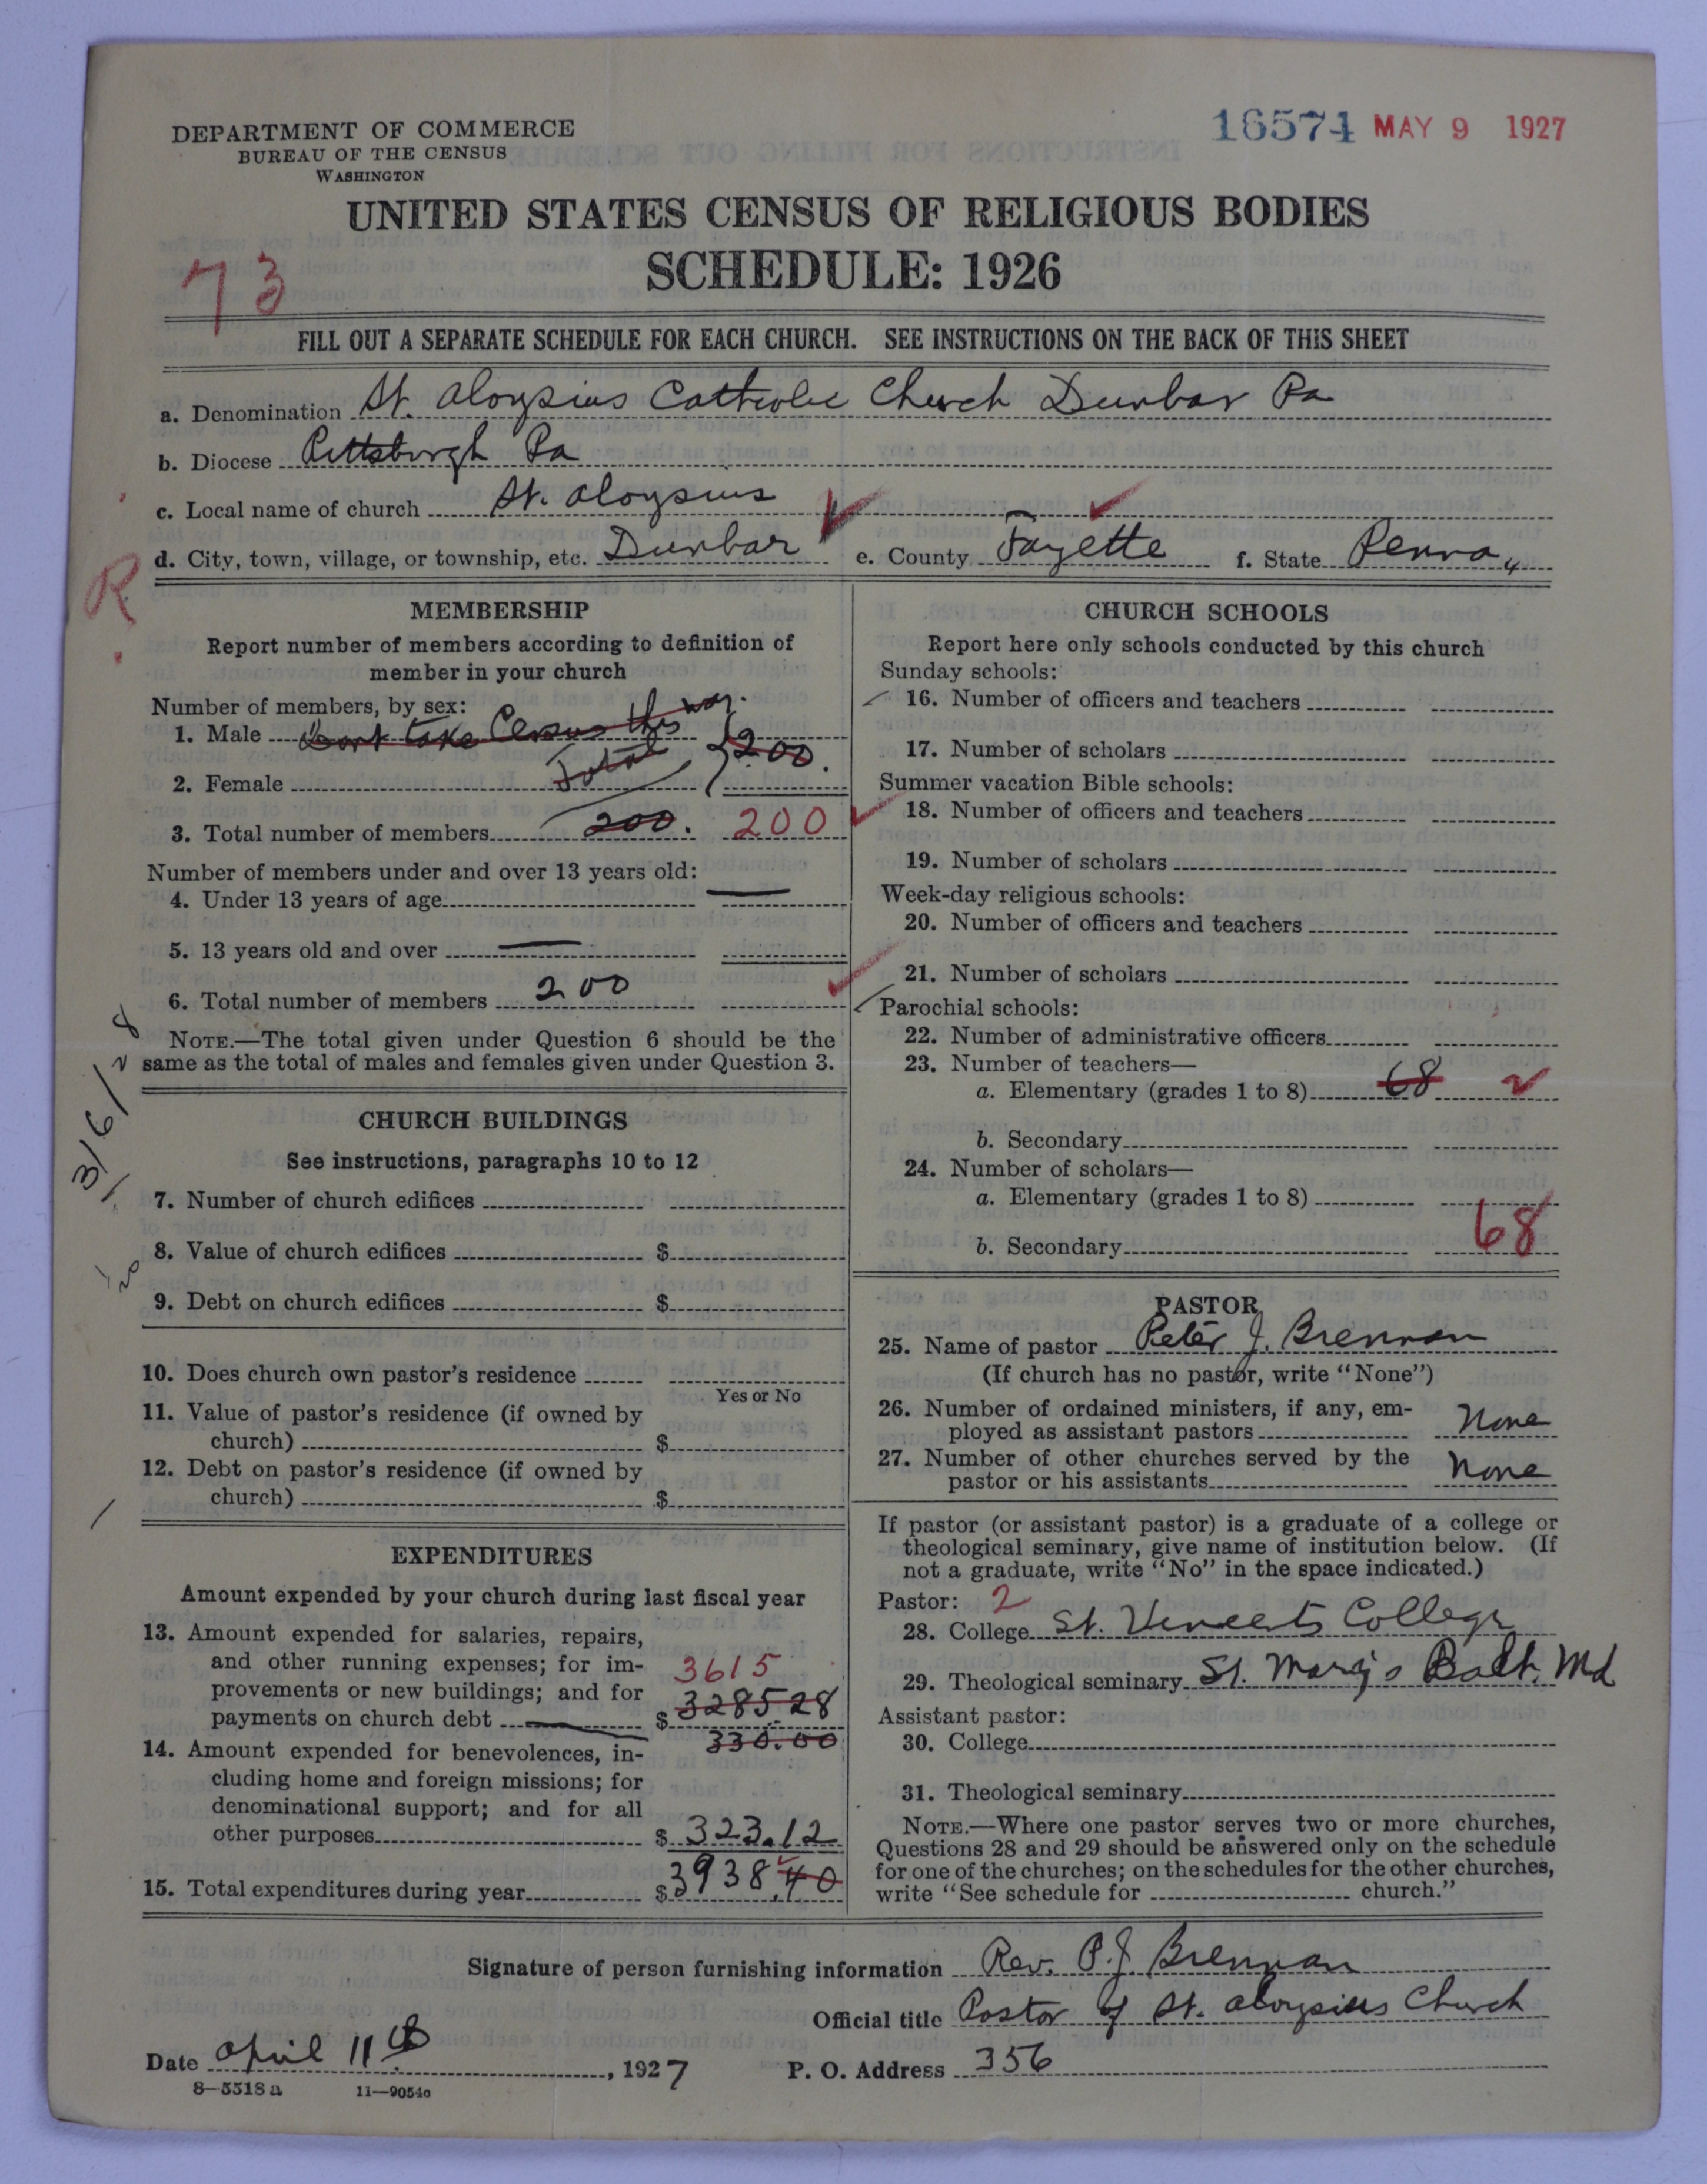 DEPARTMENT OF COMMERCE
BUREAU OF THE CENSUS
WASHINGTON
16574 MAY 9 1927
UNITED STATES CENSUS OF RELIGIOUS BODIES
SCHEDULE: 1926
73
FILL OUT A SEPARATE SCHEDULE FOR EACH CHURCH. SEE INSTRUCTIONS ON THE BACK OF THIS SHEET
a. Denomination St. Aloysius Catholic Church Dunbar Pa
b. Diocese Pittsburgh Pa
c. Local name of church St. Aloysius
d. City, town, village, or township, etc. Dunbar e. County Fayette f. State Penna
R
MEMBERSHIP
Report number of members according to definition of
member in your church
Number of members, by sex:
1. Male Dont take Census this way.
Total } 200.
2. Female
3. Total number of members 200. 200
Number of members under and over 13 years old:
4. Under 13 years of age —
5. 13 years old and over —
6. Total number of members 200
NOTE.—The total given under Question 6 should be the
same as the total of males and females given under Question 3.
3/6/28
CHURCH BUILDINGS
See instructions, paragraphs 10 to 12
7. Number of church edifices
8. Value of church edifices $
9. Debt on church edifices $
10. Does church own pastor's residence
Yes or No
11. Value of pastor's residence (if owned by
church) $
12. Debt on pastor's residence (if owned by
church) $
EXPENDITURES
Amount expended by your church during last fiscal year
13. Amount expended for salaries, repairs,
and other running expenses; for im-
provements or new buildings; and for
payments on church debt $
3615
3285 28
330.00
14. Amount expended for benevolences, in-
cluding home and foreign missions; for
denominational support; and for all
other purposes $ 323.12
15. Total expenditures during year $ 3938.40
CHURCH SCHOOLS
Report here only schools conducted by this church
Sunday schools:
16. Number of officers and teachers
17. Number of scholars
Summer vacation Bible schools:
18. Number of officers and teachers
19. Number of scholars
Week-day religious schools:
20. Number of officers and teachers
21. Number of scholars
Parochial schools:
22. Number of administrative officers
23. Number of teachers—
a. Elementary (grades 1 to 8) 68
b. Secondary
24. Number of scholars—
a. Elementary (grades 1 to 8)
68
b. Secondary
PASTOR
25. Name of pastor Peter J. Brennan
(If church has no pastor, write "None")
26. Number of ordained ministers, if any, em-
ployed as assistant pastors None
27. Number of other churches served by the
pastor or his assistants None
If pastor (or assistant pastor) is a graduate of a college or
theological seminary, give name of institution below. (If
not a graduate, write "No" in the space indicated.)
Pastor: 2
28. College St. Vincents College
29. Theological seminary St. Mary's Balt. Md
Assistant pastor:
30. College
31. Theological seminary
NOTE.—Where one pastor serves two or more churches,
Questions 28 and 29 should be answered only on the schedule
for one of the churches; on the schedules for the other churches,
write "See schedule for church."
Signature of person furnishing information Rev. P. J. Brennan
Official title Pastor of St. Aloysius Church
Date April 11th, 1927 P. O. Address 356
8—5518a 11—9054o